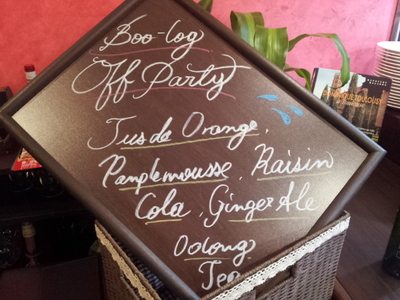 Boo-log
Off Party
Jus de Orange,
Pamplemousse, Raisin
Cola, Ginger Ale
Oolong
Tea